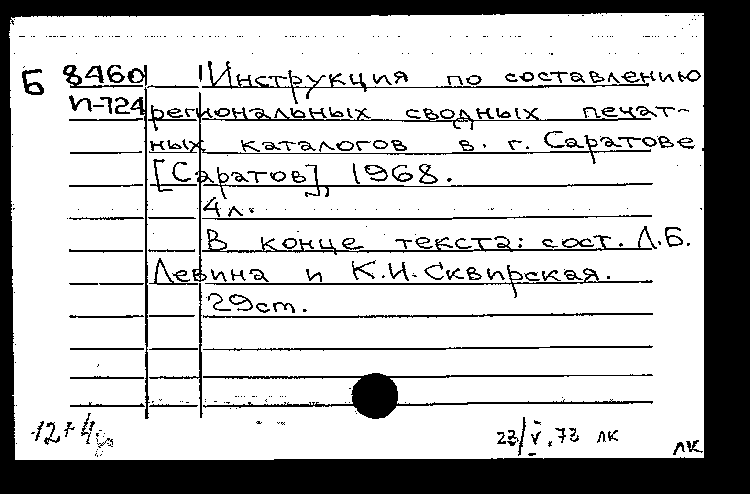 Б 8460 Инструкция по составлению
И-724 региональных сводных печат-
ных каталогов в. г. Саратове.
[Саратов], 1968.
4л.
В конце текста: сост. Л.Б.
Левина и К.И. Сквирская.
29см.
12+4
23/V.73 ЛК
ЛК